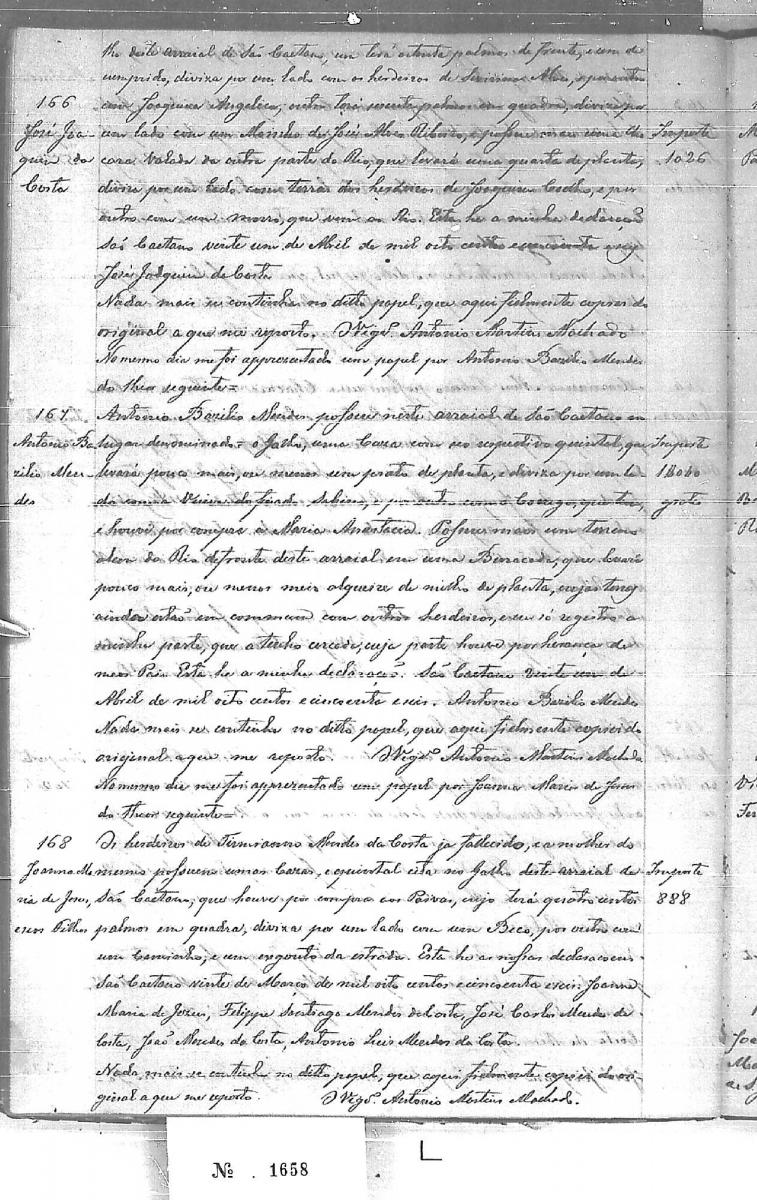 tho deste arraial de São Caetano, um terá oitenta palmos de frente, e cem de
cumprido, diviza por um lado com os herdeiros de Severino Alves, e por outro
com Joaquina Angelica, outro terá secenta palmos em quadra, diviza por
um lado com um Moinho de José Alves Ribeiro, e possue mais uma Cha
cara Valada da outra parte do Rio, que levará uma quarta de planta,
diviza por um lado com terras dos herdeiros de Joaquim Coelho, e por
outro com um morro, que vem ao Rio. Esta he a minha declaração
São Caetano vinte um de Abril de mil oito centos e cincoenta e seis
José Joaquim da Costa
Nada mais se continha no ditto papel, que aqui fielmente copiei do
original a que me reporto. O Vigr.º Antonio Martins Machado
No mesmo dia me foi appresentado um papel por Antonio Bazilio Mendes
do theor seguinte=
166
José Joa-
quim da
Costa
Importe
1026
167
Antonio Ba
zilio Men-
des
Antonio Bazilio Mendes possue neste arraial de São Caetano em
lugar denominado= o Galho, uma Caza com seo respectivo quintal, que
levará pouco mais, ou menos um prato de planta, e diviza por um la-
do com a Viuva do finado Sabino, e por outro com o Corrego, que tem,
e houve por compra a Maria Anastacia. Possue mais um terreno
alem do Rio defronte deste arraial em uma Barrocada, que levará
pouco mais, ou menos meio alqueire de milho de planta, cujas terras
ainda estão em commum com outros herdeiros, e eu só registro a
minha parte, que a tenho cercada, cuja parte houve por herança de
meos Pais. Esta he a minha declaração. São Caetano vinte um de
Abril de mil oito centos e cincoenta e seis. Antonio Bazilio Mendes
Nada mais se continha no ditto papel, que aqui fielmente copiei do
original a que me reporto. O Vigr.º Antonio Martins Machado
No mesmo dia me foi appresentado um papel por Joanna Maria de Jesus
do theor seguinte=
Importe
gratis
168
Joanna Ma
ria de Jesus,
e seos Filhos
Os herdeiros de Firmianno Mendes da Costa ja fallecido, e a molher do
mesmo possuem umas Cazas, e quintal cita no Galho deste arraial de
São Caetano, que houve por compra aos Paivas, cujo terá quatro centos
palmos em quadra, diviza por um lado com um Beco, por outro com
um Caminho, e um exgouto da estrada. Esta he as nossas declaracoens
São Caetano vinte de Marco de mil oito centos e cincoenta e seis. Joanna
Maria de Jesus, Felippe Santiago Mendes da Costa, José Carlos Mendes da
Costa, João Mendes da Costa, Antonio Luis Mendes da Costa.
Nada mais se continha no ditto papel, que aqui fielmente copiei do ori-
ginal a que me reporto. O Vigr.º Antonio Martins Machado.
Importe
888
Nº 1658